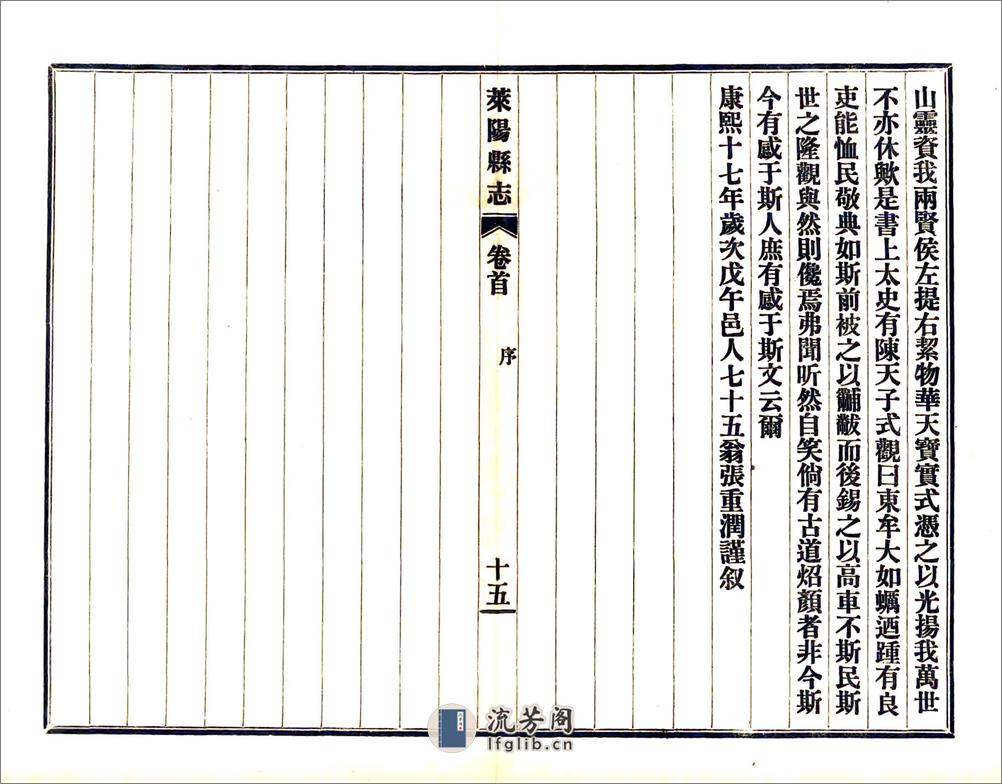 山靈資我兩賢侯左提右絜物華天寶實式憑之以光揚我萬世
不亦休歟是書上太史有陳天子式觀曰東牟大如蠣迺踵有良
吏能恤民敬典如斯前被之以黼黻而後錫之以高車不斯民斯
世之隆觀與然則儳焉弗聞听然自笑倘有古道炤顏者非今斯
今有感于斯人庶有感于斯文云爾
康熙十七年歲次戊午邑人七十五翁張重潤謹叙
萊陽縣志
卷首
序
十五
流芳阁
lfglib.cn